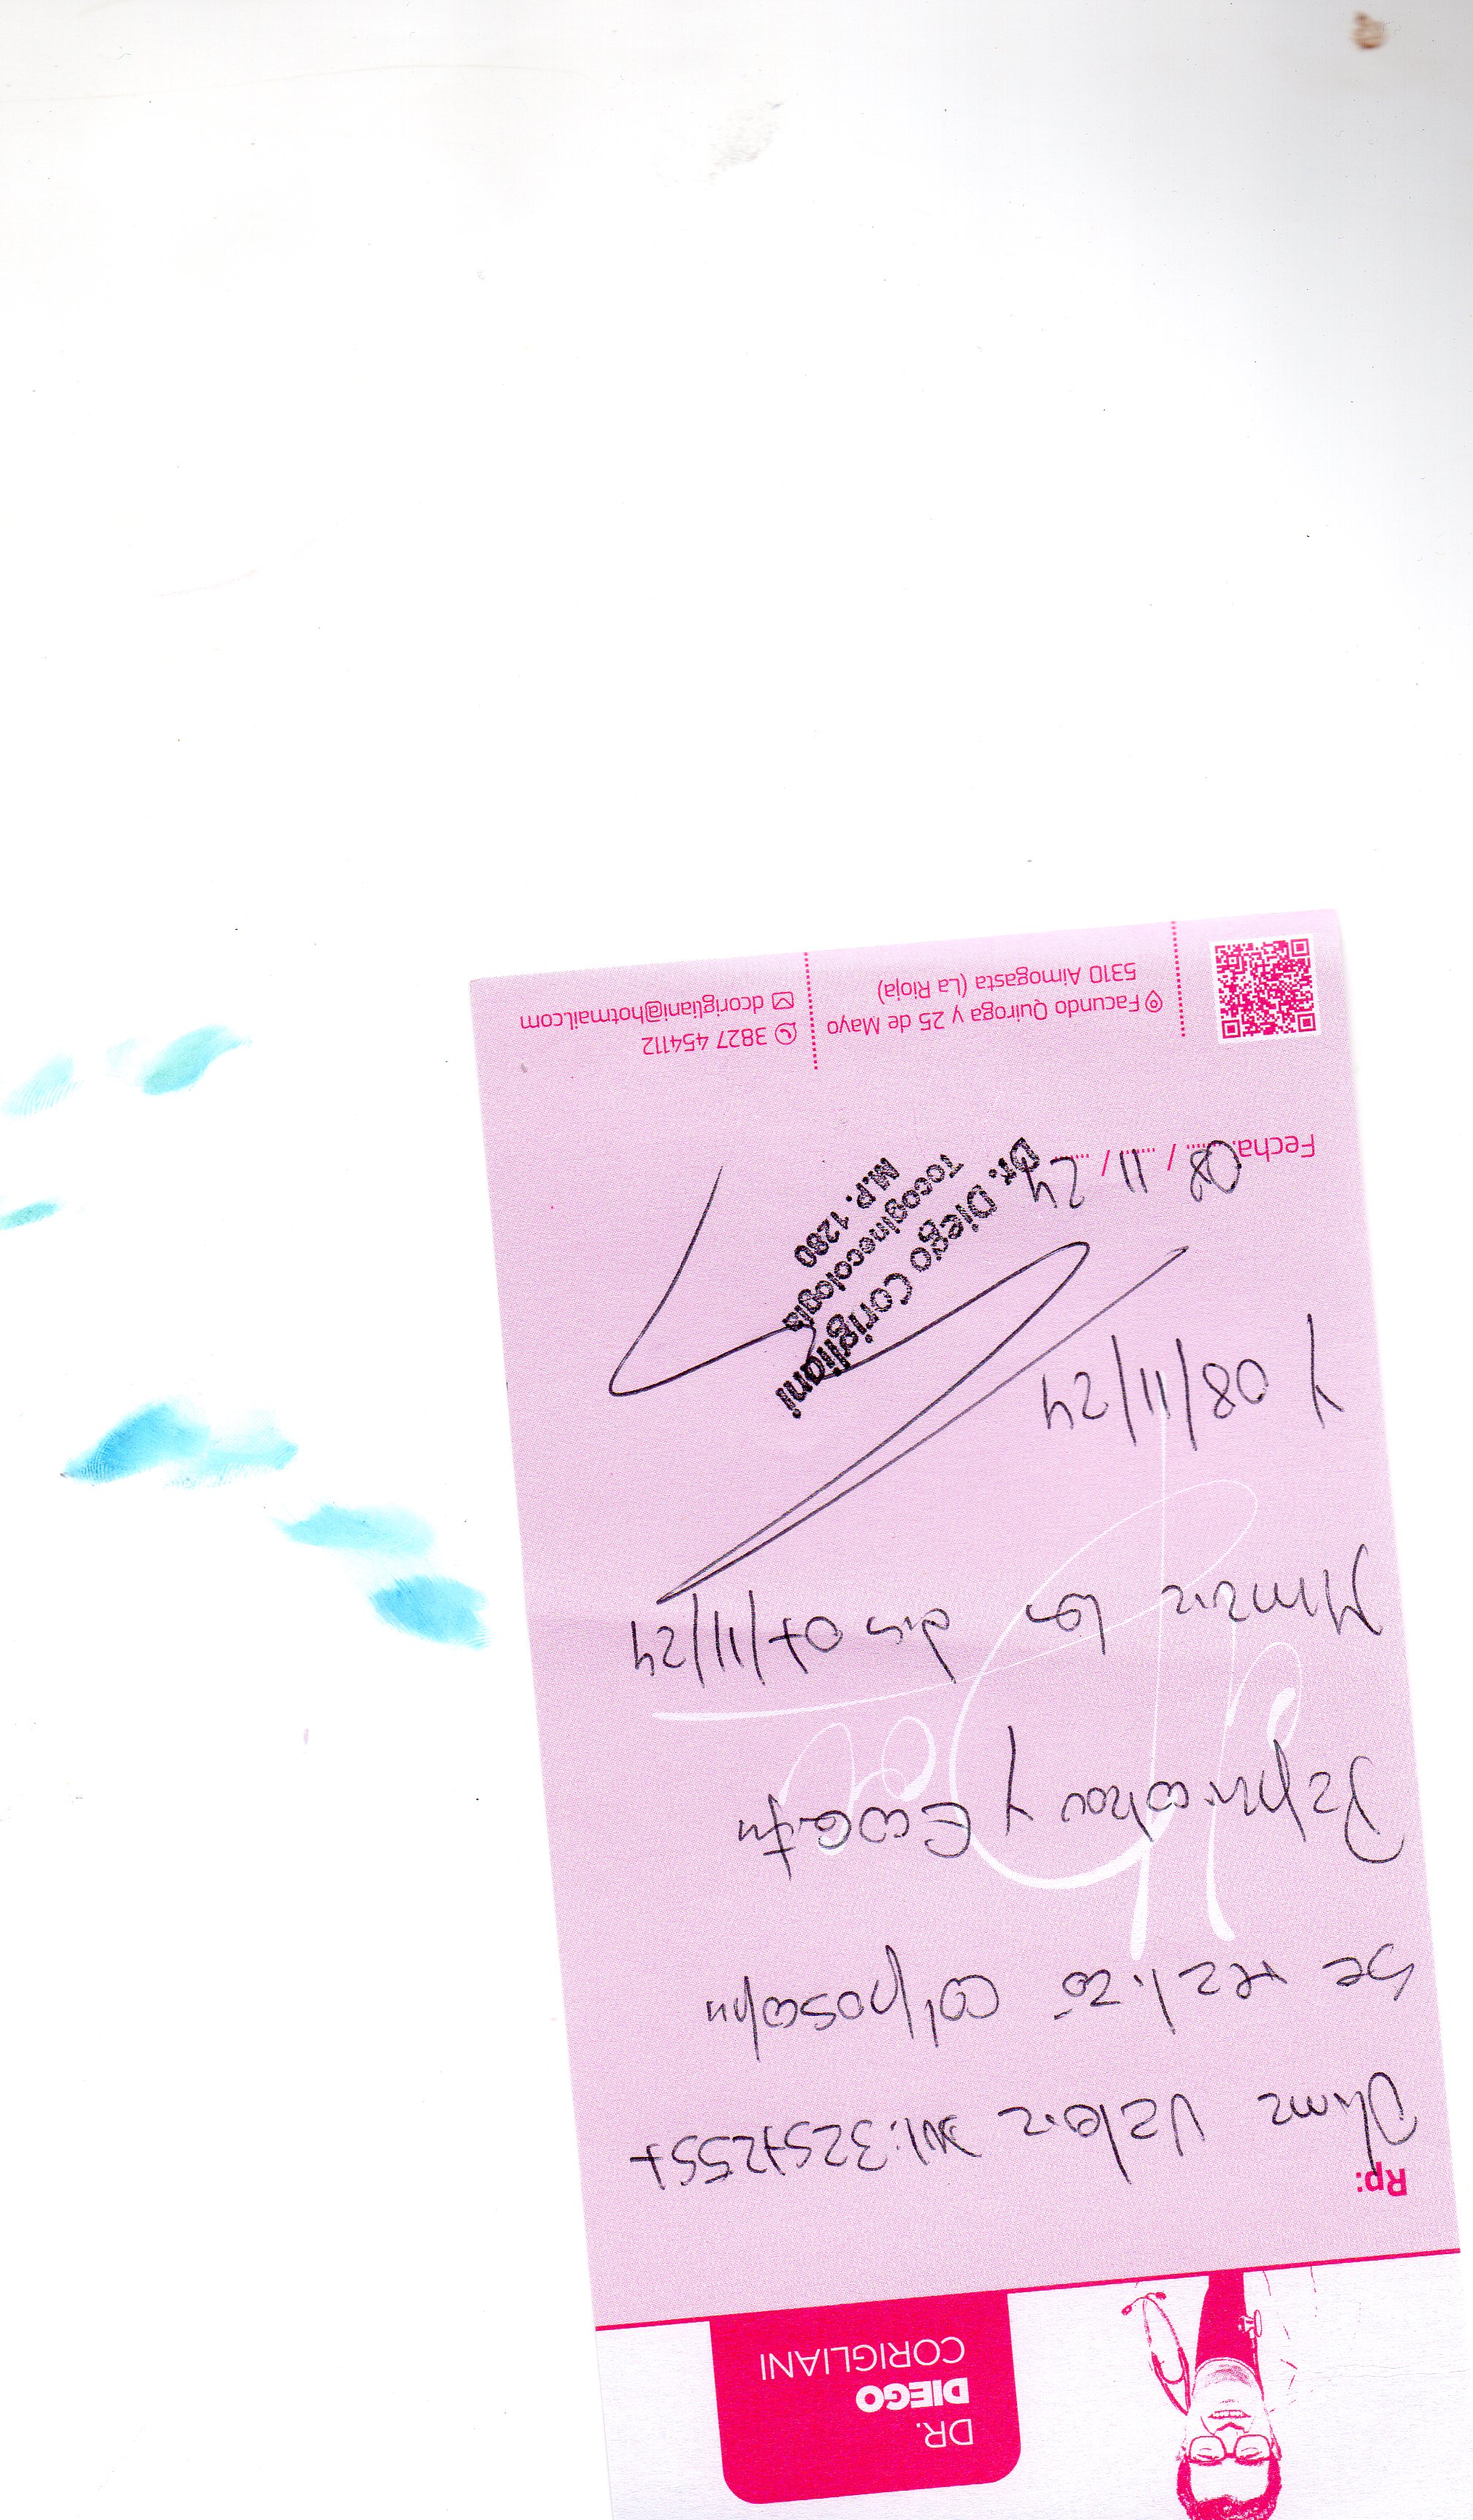 DR.
DIEGO
CORIGLIANI
Rp:
Valeria DNI: 32572557
Se realizó colposcopia
Papanicolaou y Ecografia
Mamaria los dias 07/11/24
Y 08/11/24
Dr. Diego Corigliani
Tocoginecología
M.P. 1280
Fecha: 08 / 11 / 24
Facundo Quiroga y 25 de Mayo
5310 Aimogasta (La Rioja)
3827 454112
dcorigliani@hotmail.com